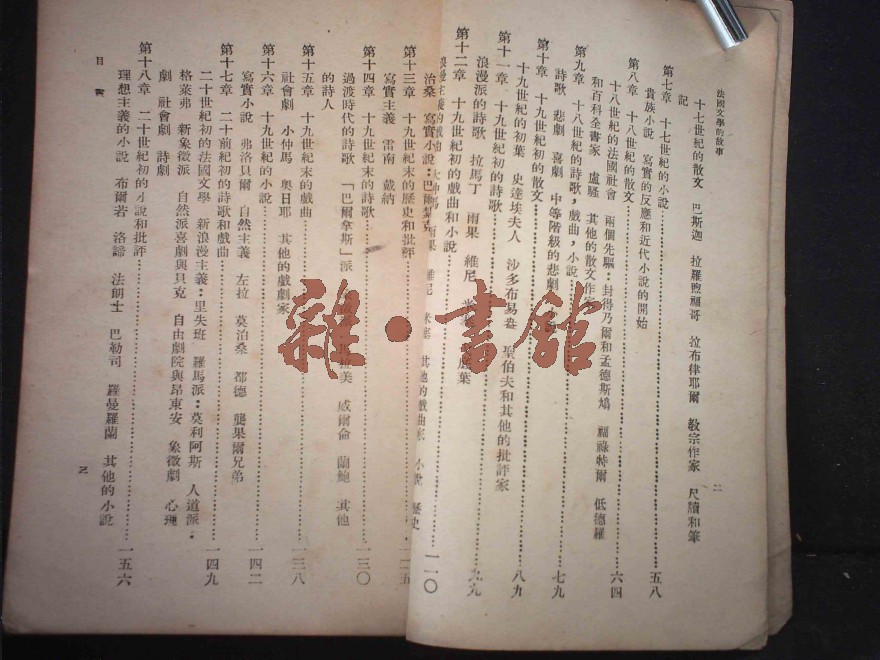 法國文學的故事
二
十七世紀的散文 巴斯迦 拉羅煦福哥 拉布律耶爾 教宗作家 尺牘和筆
記
第七章 十七世紀的小說 五八
貴族小說 寫實的反應和近代小說的開始
第八章 十八世紀的散文 六四
十八世紀的法國社會 兩個先驅：封得乃爾和孟德斯鳩 福祿特爾 低德羅
和百科全書家 盧騷 其他的散文作家
第九章 十八世紀的詩歌，戲曲，小說 七九
詩歌 悲劇 喜劇 中等階級的悲劇
第十章 十九世紀初的散文 八九
十九世紀的初葉 史達埃夫人 沙多布易盎 聖伯夫和其他的批評家
第十一章 十九世紀初的詩歌 九九
浪漫派的詩歌 拉馬丁 雨果 維尼
第十二章 十九世紀初的戲曲和小說 一一〇
浪漫主義的戲曲 大仲馬 雨果 維尼 米塞 其他的戲曲家 小說 歷史
治桑 寫實小說：巴爾紮克
第十三章 十九世紀末的歷史和批評 一二五
寫實主義 雷南 戴納
第十四章 十九世紀末的詩歌 一三〇
過渡時代的詩歌 「巴爾拿斯」派 威爾侖 蘭鮑 其他
的詩人
第十五章 十九世紀末的戲曲 一三八
社會劇 小仲馬 奧日耶 其他的戲劇家
第十六章 十九世紀的小說 一四二
寫實小說 弗洛貝爾 自然主義 左拉 莫泊桑 都德 龔果爾兄弟
第十七章 二十前紀初的詩歌和戲曲 一四九
二十世紀初的法國文學 新浪漫主義：里失班 羅馬派：莫利阿斯 人道派：
格萊弗 新象徵派 自然派喜劇與貝克 自由劇院與昂東安 象徵劇 心理
劇 社會劇 詩劇
第十八章 二十世紀初的小說和批評 一五六
理想主義的小說 布爾若 洛諦 法朗士 巴勒司 羅曼羅蘭 其他的小說
目 次
三
雜·書館